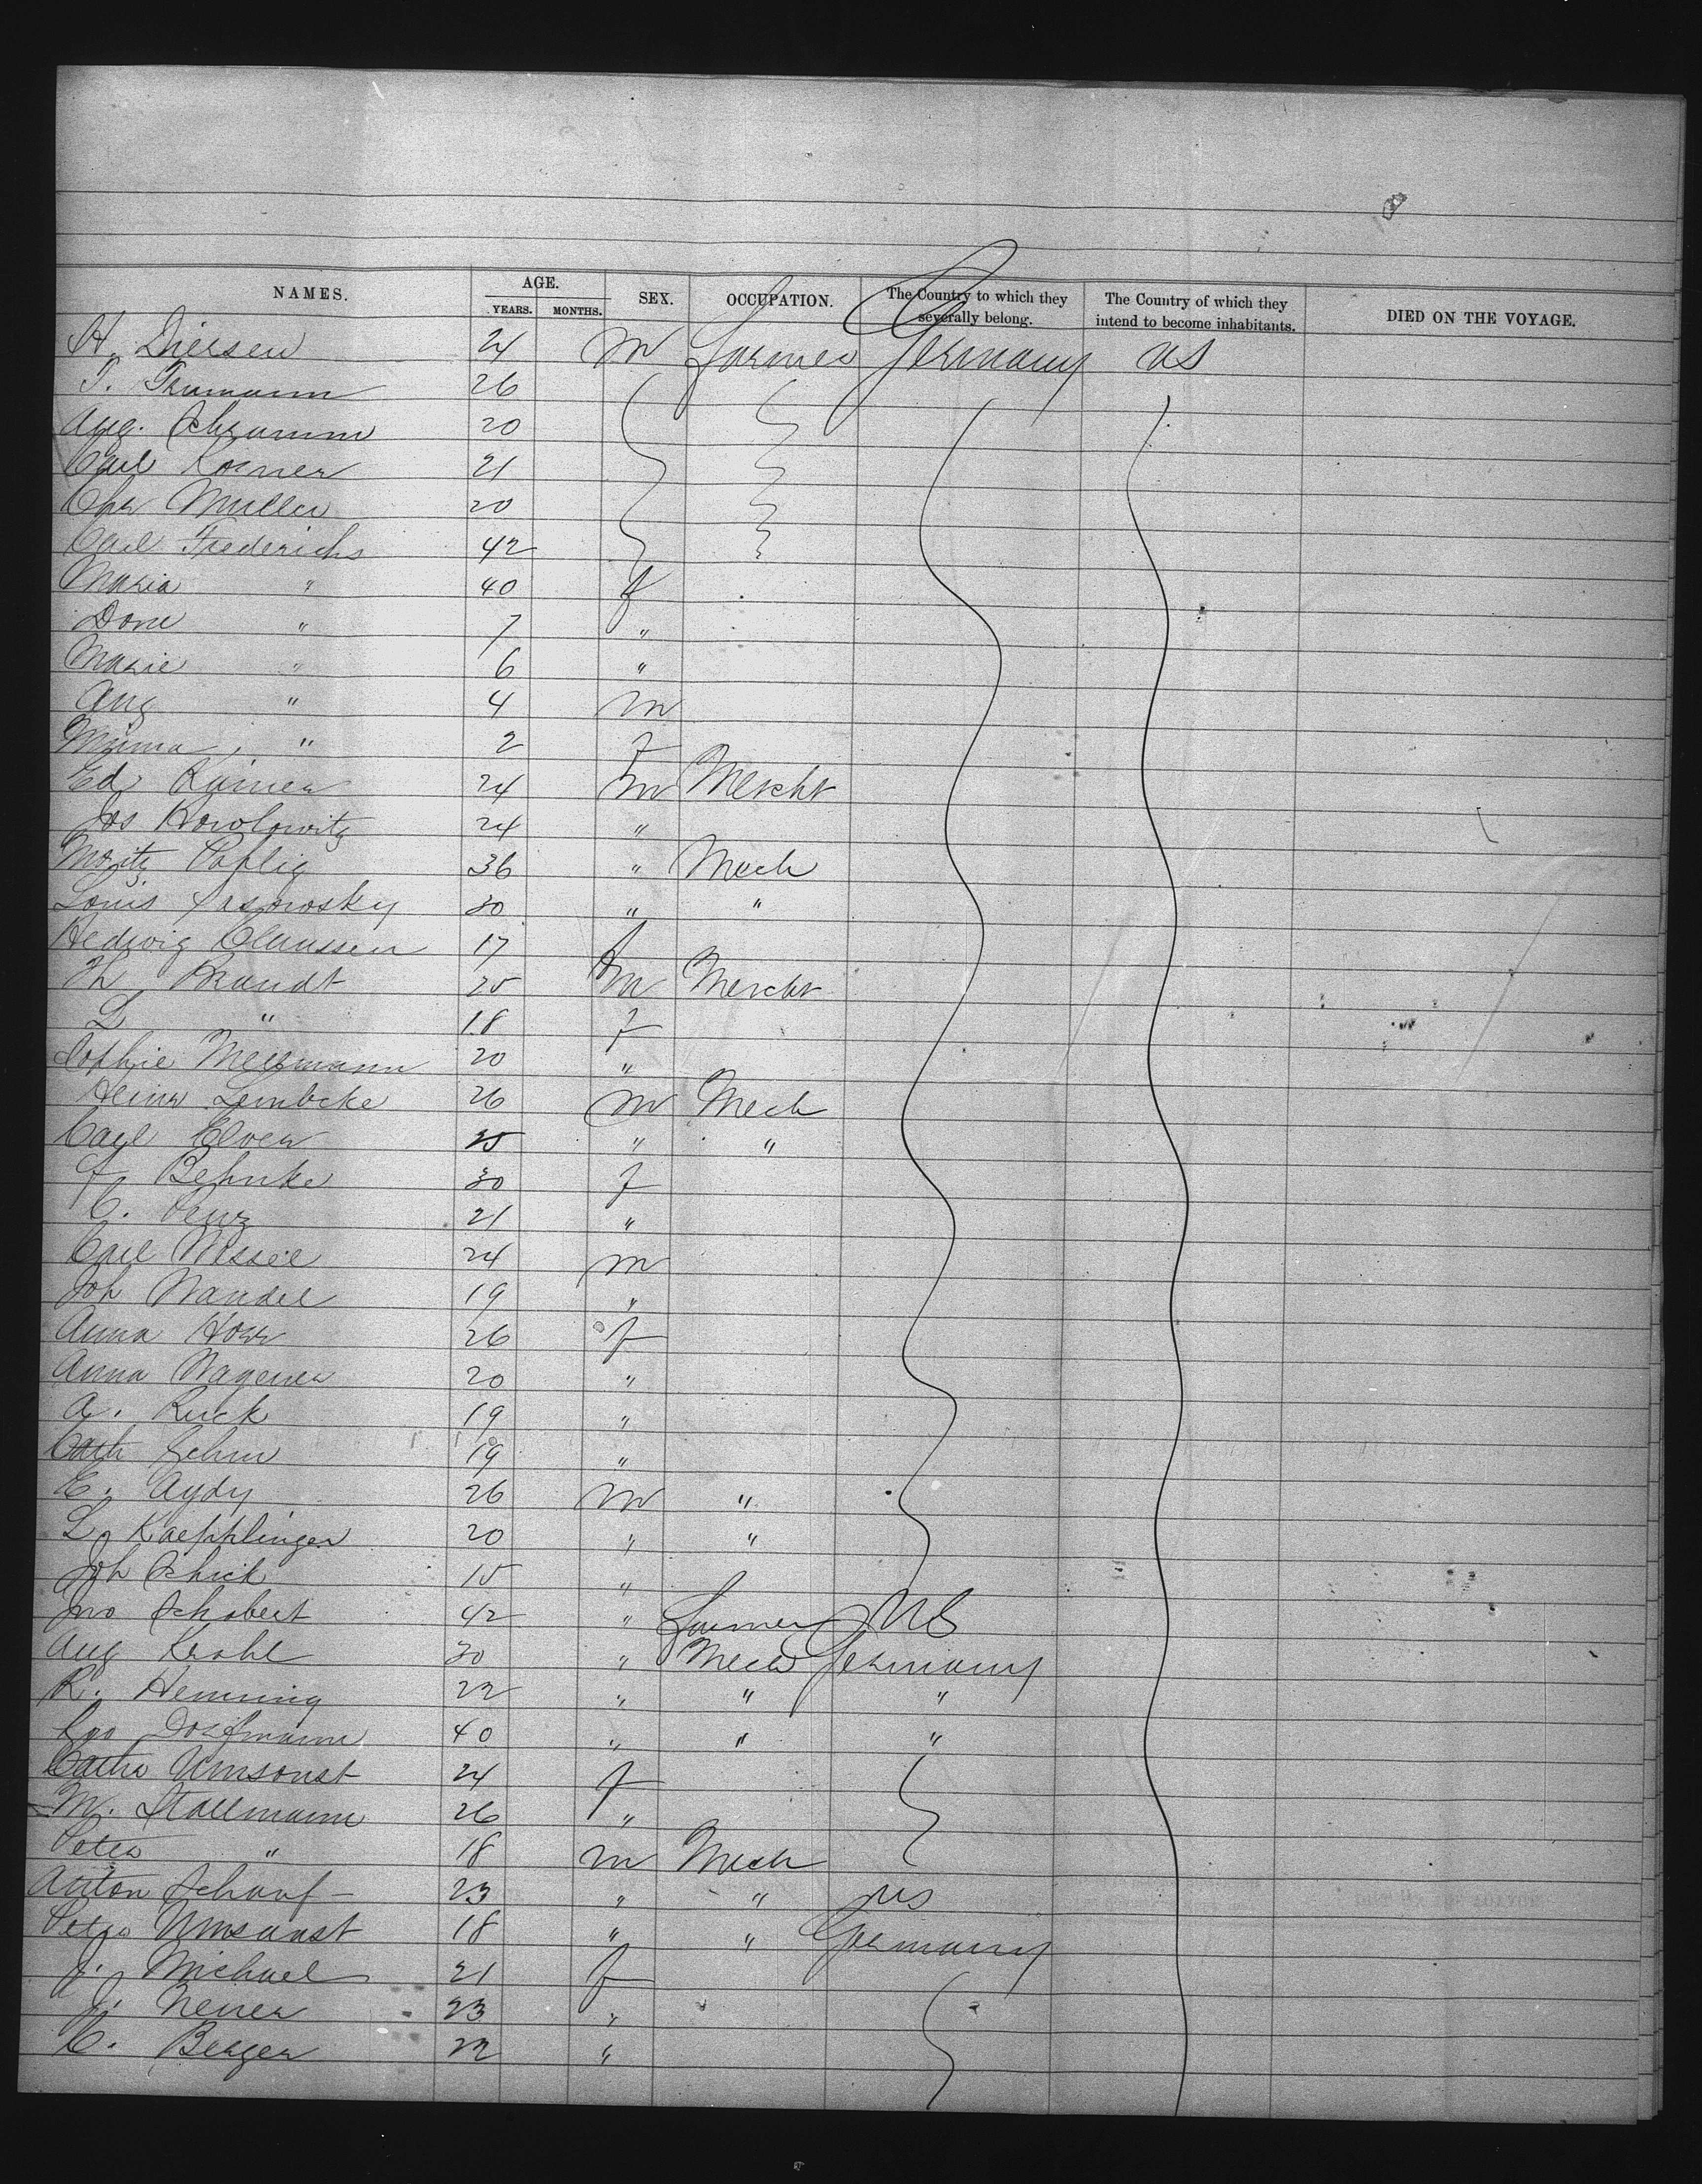 NAMES. AGE. YEARS. MONTHS. SEX. OCCUPATION. The Country to which they severally belong. The Country of which they intend to become inhabitants. DIED ON THE VOYAGE.
H. Diersen 24 m Farmer Germany US
T. Tramann 26
Aug. Schramm 20
Carl Korner 21
Chr Muller 20
Carl Frederichs 42
Maria " 40 f
Dore " 7 "
Marie " 6 "
Aug " 4 m
Minna " 2 f
Ed Romer 24 m Mercht
Jos Kowlowitz 24 "
Moritz 36 " Mech
Louis 30 " "
Hedwig Claussen 17 f
Th Brandt 25 m Mercht
L " 18 f
Sophie Messmann 20 "
Heinr Lembcke 26 m Mech
Carl Elver 25 " "
F. Behnke 30 f
C. Penz 21 "
Carl Wessel 24 m
Joh Wandel 19 "
Anna Horr 26 f
Anna Wagener 20 "
A. Ruck 19 "
Cath Sehm 19 "
E. Aydy 26 m "
L. Kaepplinger 20 " "
Joh Schick 15 "
Jno Schobert 42 " Farmer US
Aug Krohl 30 " Mech Germany
R. Henning 22 " " "
Geo Dorfmann 40 " " "
Cath Umsonst 24 f
M. Stallmann 26 "
Peter " 18 m Mech
Anton Schauf 23 " " US
Peter Umsonst 18 " " Germany
J. Michael 21 f
J. Neuer 23 "
C. Berger 22 "